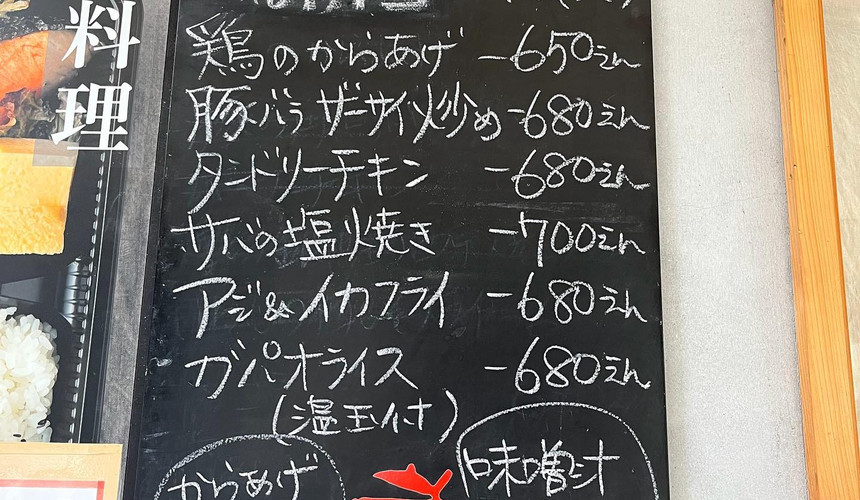 料理
鶏のからあげ -650えん
豚バラ ザーサイ炒め -680えん
タンドリーチキン -680えん
サバの塩焼き -700えん
アジ&イカフライ -680えん
ガパオライス -680えん
(温玉付)
からあげ
味噌汁